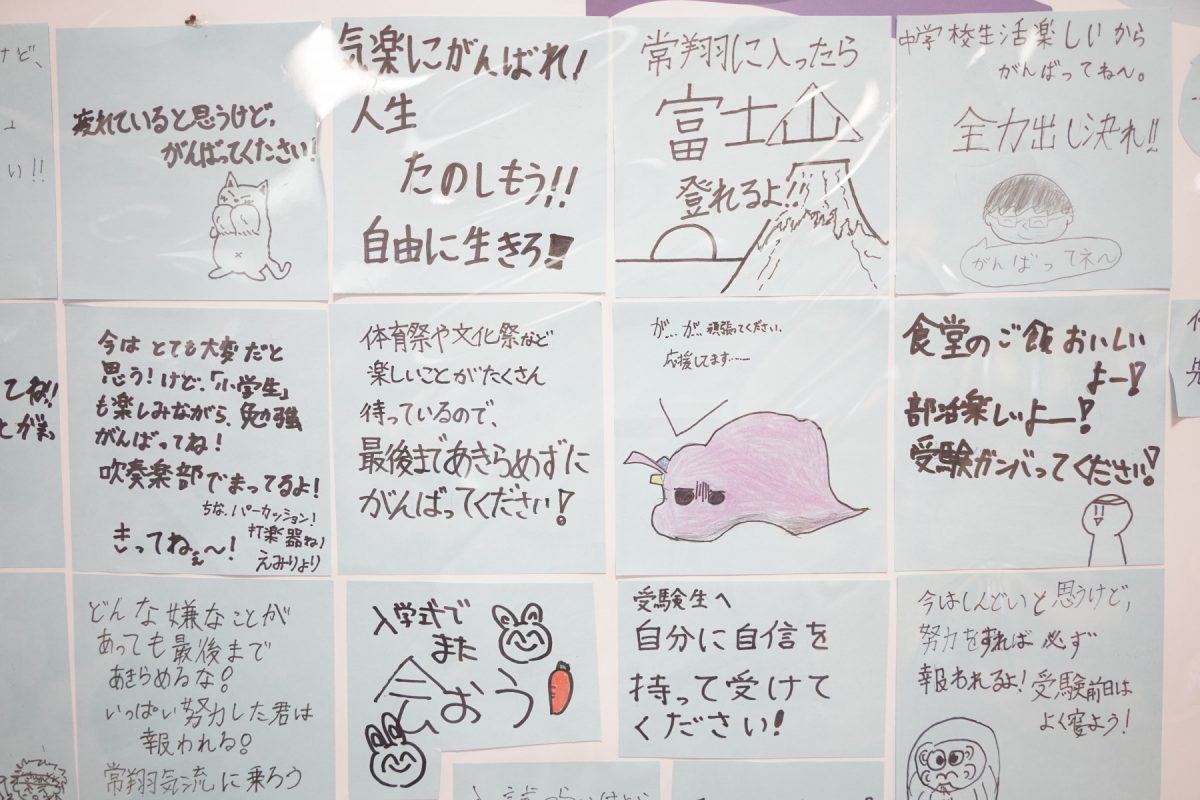 けど、
い!!
疲れていると思うけど、
がんばってください!
気楽にがんばれ!
人生
たのしもう!!
自由に生きろ!
常翔に入ったら
富士山
登れるよ!!
中学校生活楽しいから
がんばってね〜。
全力出し決れ!!
がんばってネ〜
てね!!
今はとても大変だと
思う!けど、「小学生」
も楽しみながら、勉強
がんばってね!
吹奏楽部でまってるよ!
ちな、パーカッション!
打楽器ね♪
きってねぇ〜!
えみりより
体育祭や文化祭など
楽しいことがたくさん
待っているので、
最後まであきらめずに
がんばってください!
が…が…頑張ってください。
応援してます……
食堂のご飯おいしい
よー!
部活楽しいよー!
受験ガンバってください!
どんな嫌なことが
あっても最後まで
あきらめるな!
いっぱい努力した君は
報われる!
常翔気流に乗ろう
入学式で
また
会おう
受験生へ
自分に自信を
持って受けて
ください!
今はしんどいと思うけど、
努力をすれば必ず
報われるよ!受験前日は
よく寝よう!